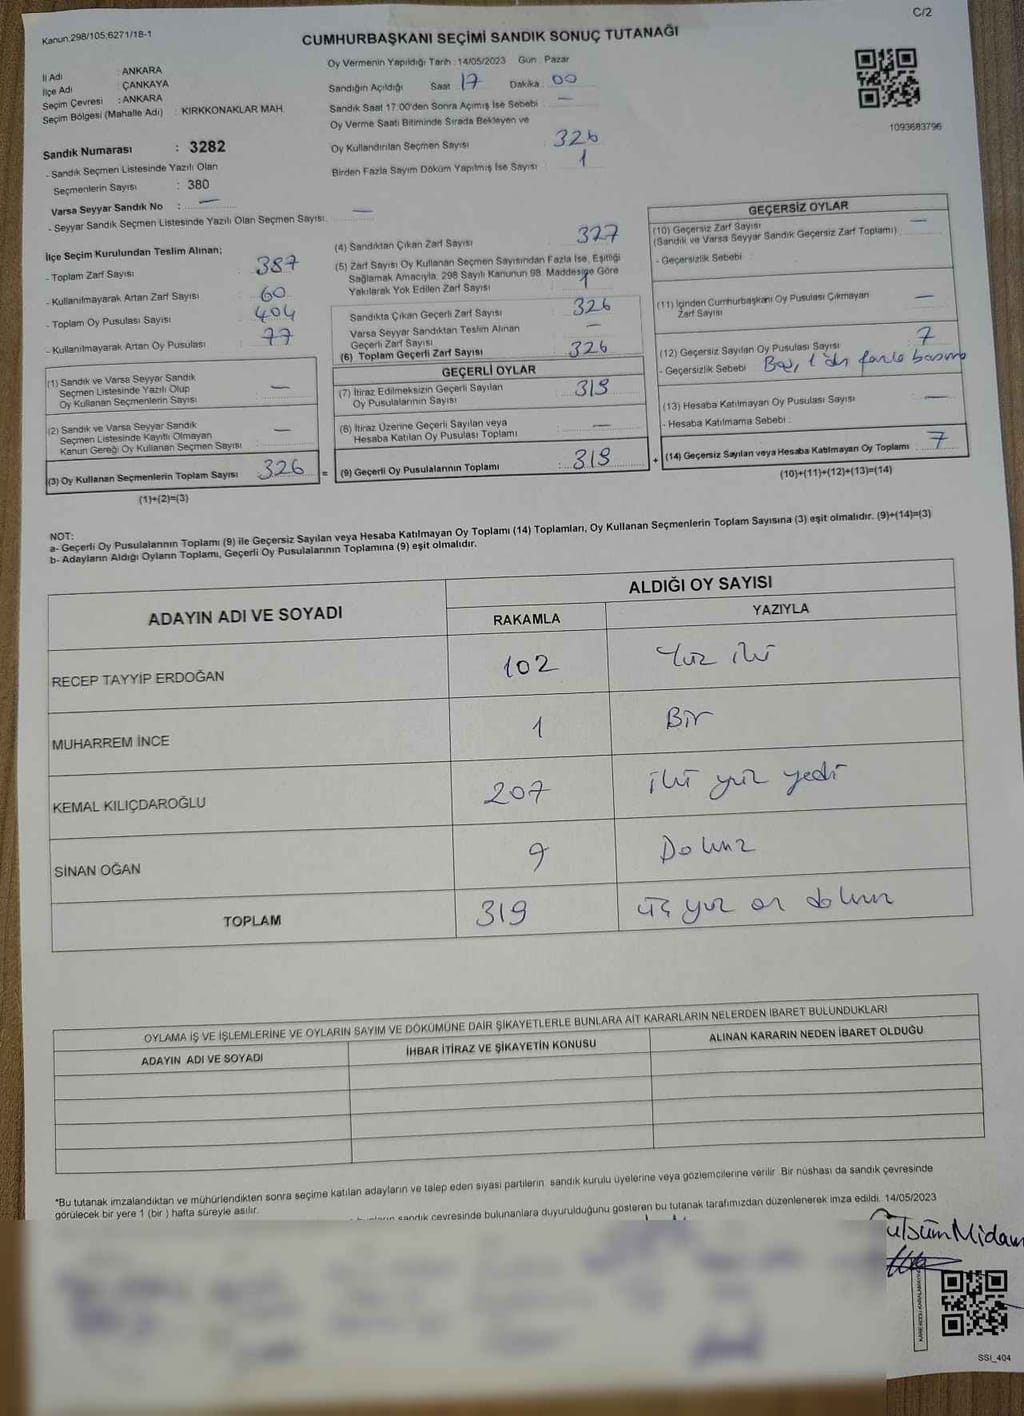 C/2
Kanun:298/105,6271/18-1
CUMHURBAŞKANI SEÇİMİ SANDIK SONUÇ TUTANAĞI
İl Adı : ANKARA
İlçe Adı : ÇANKAYA
Seçim Çevresi : ANKARA
Seçim Bölgesi (Mahalle Adı) : KIRKKONAKLAR MAH.
Sandık Numarası : 3282
- Sandık Seçmen Listesinde Yazılı Olan
Seçmenlerin Sayısı : 380
Varsa Seyyar Sandık No : —
- Seyyar Sandık Seçmen Listesinde Yazılı Olan Seçmen Sayısı : —
Oy Vermenin Yapıldığı Tarih : 14/05/2023 Gün : Pazar
Sandığın Açıldığı Saat 17 Dakika : 00
Sandık Saat 17:00'den Sonra Açılmış İse Sebebi : —
Oy Verme Saati Bitiminde Sırada Bekleyen ve
Oy Kullandırılan Seçmen Sayısı 326
Birden Fazla Sayım Döküm Yapılmış İse Sayısı 1
1093683796
İlçe Seçim Kurulundan Teslim Alınan;
- Toplam Zarf Sayısı 387
- Kullanılmayarak Artan Zarf Sayısı 60
- Toplam Oy Pusulası Sayısı 404
- Kullanılmayarak Artan Oy Pusulası 77
(1) Sandık ve Varsa Seyyar Sandık
Seçmen Listesinde Yazılı Olup
Oy Kullanan Seçmenlerin Sayısı —
(2) Sandık ve Varsa Seyyar Sandık
Seçmen Listesinde Kayıtlı Olmayan
Kanun Gereği Oy Kullanan Seçmen Sayısı —
(3) Oy Kullanan Seçmenlerin Toplam Sayısı 326 =
(1)+(2)=(3)
(4) Sandıktan Çıkan Zarf Sayısı 327
(5) Zarf Sayısı Oy Kullanan Seçmen Sayısından Fazla İse, Eşitliği
Sağlamak Amacıyla, 298 Sayılı Kanunun 98. Maddesine Göre
Yakılarak Yok Edilen Zarf Sayısı 1
Sandıkta Çıkan Geçerli Zarf Sayısı 326
Varsa Seyyar Sandıktan Teslim Alınan
Geçerli Zarf Sayısı —
(6) Toplam Geçerli Zarf Sayısı 326
GEÇERLİ OYLAR
(7) İtiraz Edilmeksizin Geçerli Sayılan
Oy Pusulalarının Sayısı 319
(8) İtiraz Üzerine Geçerli Sayılan veya
Hesaba Katılan Oy Pusulası Toplamı —
(9) Geçerli Oy Pusulalarının Toplamı : 319 +
GEÇERSİZ OYLAR
(10) Geçersiz Zarf Sayısı —
(Sandık ve Varsa Seyyar Sandık Geçersiz Zarf Toplamı)
- Geçersizlik Sebebi :
(11) İçinden Cumhurbaşkanı Oy Pusulası Çıkmayan
Zarf Sayısı —
(12) Geçersiz Sayılan Oy Pusulası Sayısı 7
- Geçersizlik Sebebi fazla
(13) Hesaba Katılmayan Oy Pusulası Sayısı —
- Hesaba Katılmama Sebebi :
(14) Geçersiz Sayılan veya Hesaba Katılmayan Oy Toplamı 7
(10)+(11)+(12)+(13)=(14)
NOT:
a- Geçerli Oy Pusulalarının Toplamı (9) ile Geçersiz Sayılan veya Hesaba Katılmayan Oy Toplamı (14) Toplamları, Oy Kullanan Seçmenlerin Toplam Sayısına (3) eşit olmalıdır. (9)+(14)=(3)
b- Adayların Aldığı Oyların Toplamı, Geçerli Oy Pusulalarının Toplamına (9) eşit olmalıdır.
ADAYIN ADI VE SOYADI
ALDIĞI OY SAYISI
RAKAMLA YAZIYLA
RECEP TAYYİP ERDOĞAN 102 Yüz iki
MUHARREM İNCE 1 Bir
KEMAL KILIÇDAROĞLU 207 iki yüz yedi
SİNAN OĞAN 9 Dokuz
TOPLAM 319 üç yüz on dokuz
OYLAMA İŞ VE İŞLEMLERİNE VE OYLARIN SAYIM VE DÖKÜMÜNE DAİR ŞİKAYETLERLE BUNLARA AİT KARARLARIN NELERDEN İBARET BULUNDUKLARI
ADAYIN ADI VE SOYADI İHBAR İTİRAZ VE ŞİKAYETİN KONUSU ALINAN KARARIN NEDEN İBARET OLDUĞU
*Bu tutanak imzalandıktan ve mühürlendikten sonra seçime katılan adayların ve talep eden siyasi partilerin sandık kurulu üyelerine veya gözlemcilerine verilir. Bir nüshası da sandık çevresinde
görülecek bir yere 1 (bir) hafta süreyle asılır.
sandık çevresinde bulunanlara duyurulduğunu gösteren bu tutanak tarafımızdan düzenlenerek imza edildi. 14/05/2023
SSI_404